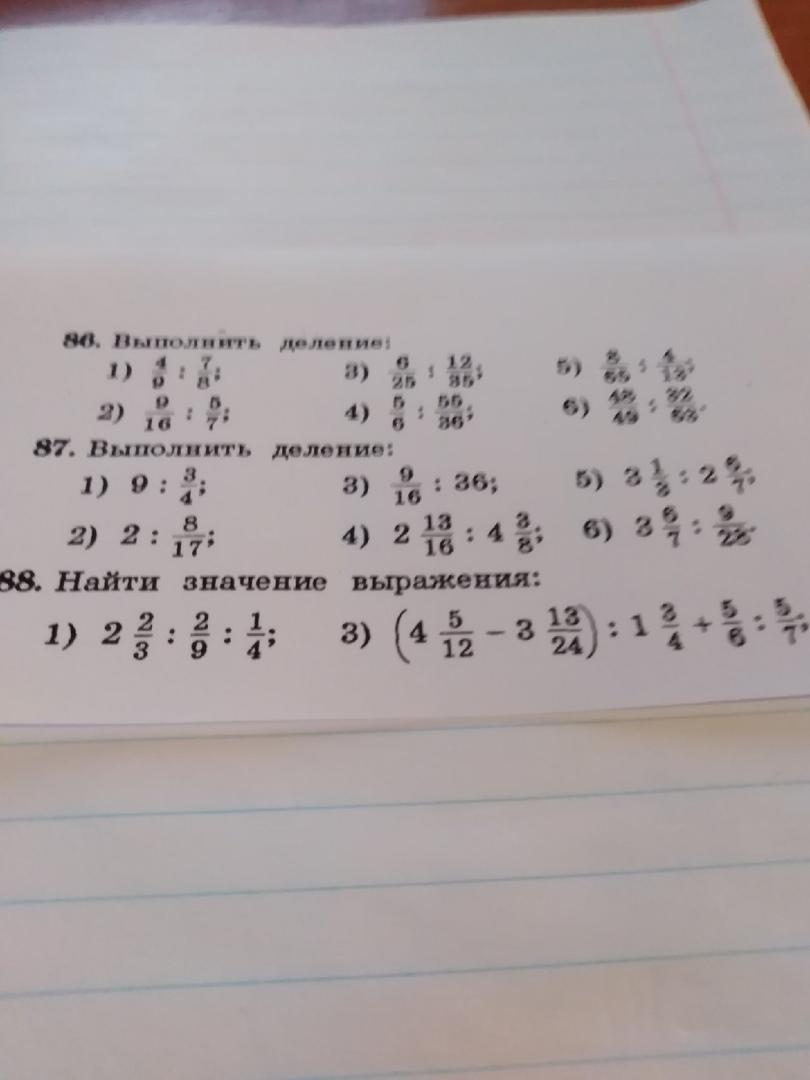 86. Выполнить деление:
1) 4/9 : 7/8; 3) 6/25 : 12/35; 5) 8/65 : 4/13;
2) 9/16 : 5/7; 4) 5/6 : 55/36; 6) 48/49 : 32/63.
87. Выполнить деление:
1) 9 : 3/4; 3) 9/16 : 36; 5) 3 1/3 : 2 6/7;
2) 2 : 8/17; 4) 2 13/16 : 4 3/8; 6) 3 6/7 : 9/28.
88. Найти значение выражения:
1) 2 2/3 : 2/9 : 1/4; 3) (4 5/12 − 3 13/24) : 1 3/4 + 5/6 : 5/7;